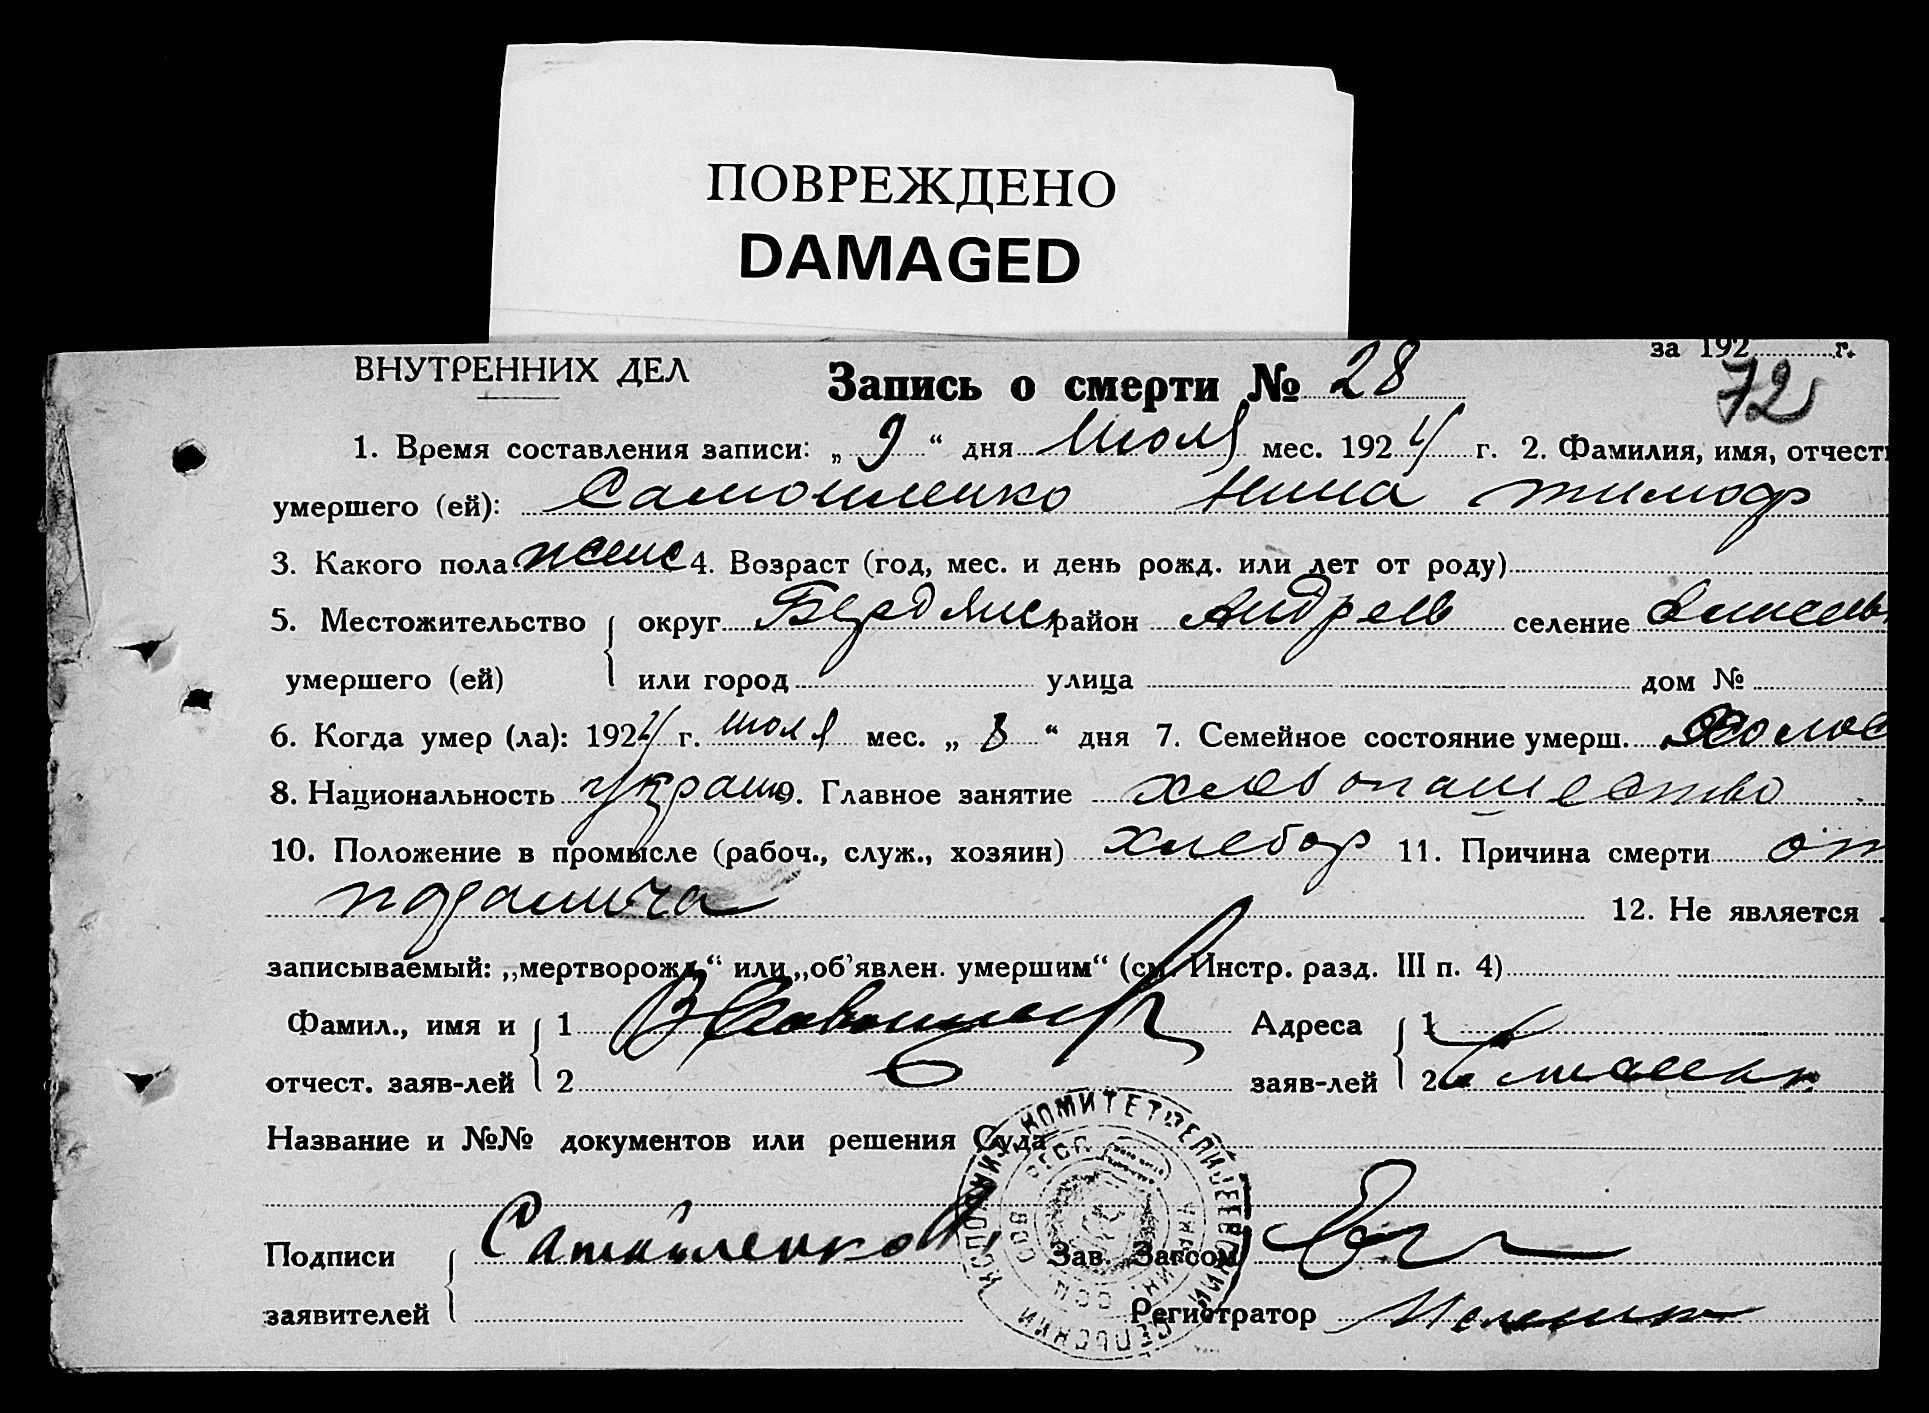 ПОВРЕЖДЕНО
DAMAGED
ВНУТРЕННИХ ДЕЛ
за 192 г.
Запись о смерти № 28
72
1. Время составления записи: „ 9 “ дня Июля мес. 1924 г. 2. Фамилия, имя, отчест
умершего (ей): Самойленко Нина Тимоф
3. Какого пола женс 4. Возраст (год, мес. и день рожд. или лет от роду)
5. Местожительство округ Бердянс район Андреев селение
умершего (ей) или город улица дом №
6. Когда умер (ла): 1924 г. июля мес. „ 8 “ дня 7. Семейное состояние умерш. холос
8. Национальность украин 9. Главное занятие хлебопашество
10. Положение в промысле (рабоч., служ., хозяин) хлебор 11. Причина смерти от
12. Не является
записываемый: „мертворожд.“ или „об’явлен. умершим“ (см. Инстр. разд. III п. 4)
Фамил., имя и 1 Адреса 1
отчест. заяв-лей 2 заяв-лей 2
Название и №№ документов или решения Суда
Подписи Самойленко Зав. Загсом
заявителей Регистратор